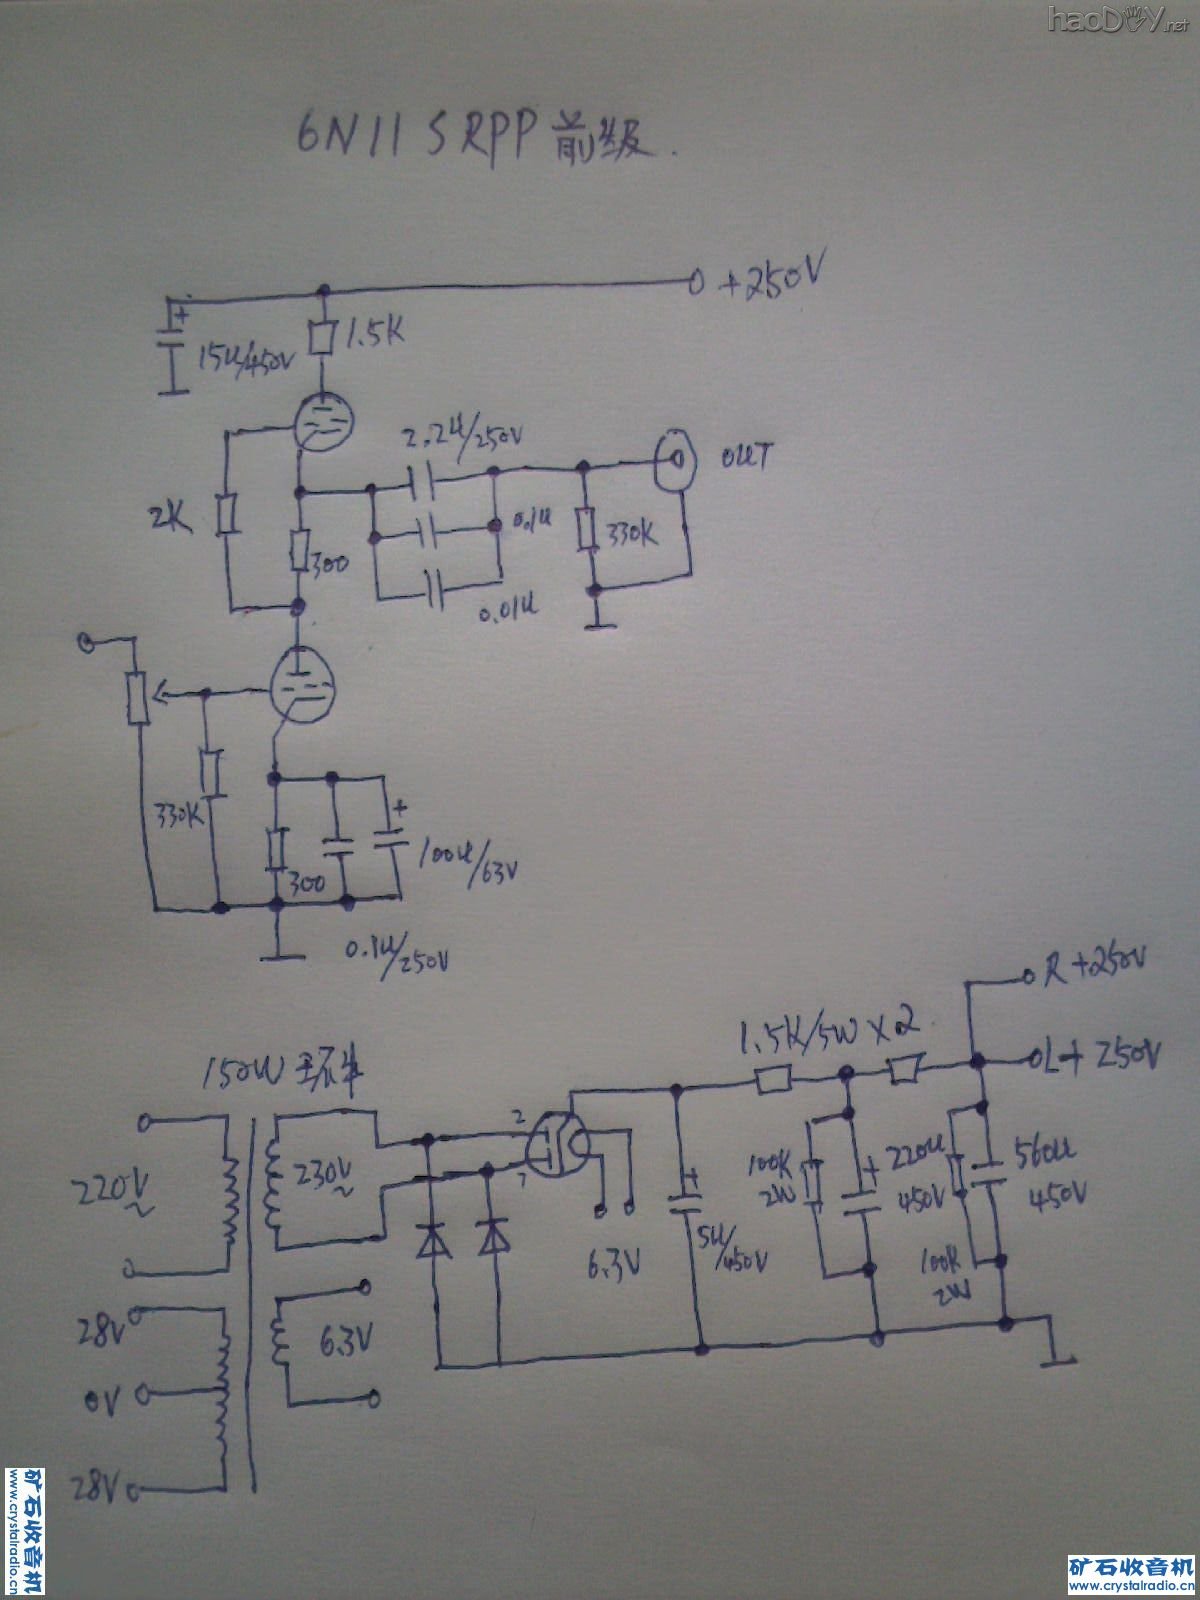 haoDIY.net
6N11 SRPP 前级.
+250V
+
15u/450V
1.5K
2.2u/250V
OUT
2K
0.1u
330K
300
0.01u
330K
+
100u/63V
300
0.1u/250V
R +250V
1.5K/5W×2
L+250V
150W 环牛
2
220V
~
230V
~
7
100K
2W
+
220u
450V
560u
450V
+
5u/450V
6.3V
100K
2W
28V
6.3V
0V
28V
矿石收音机
www.crystalradio.cn
矿石收音机
www.crystalradio.cn